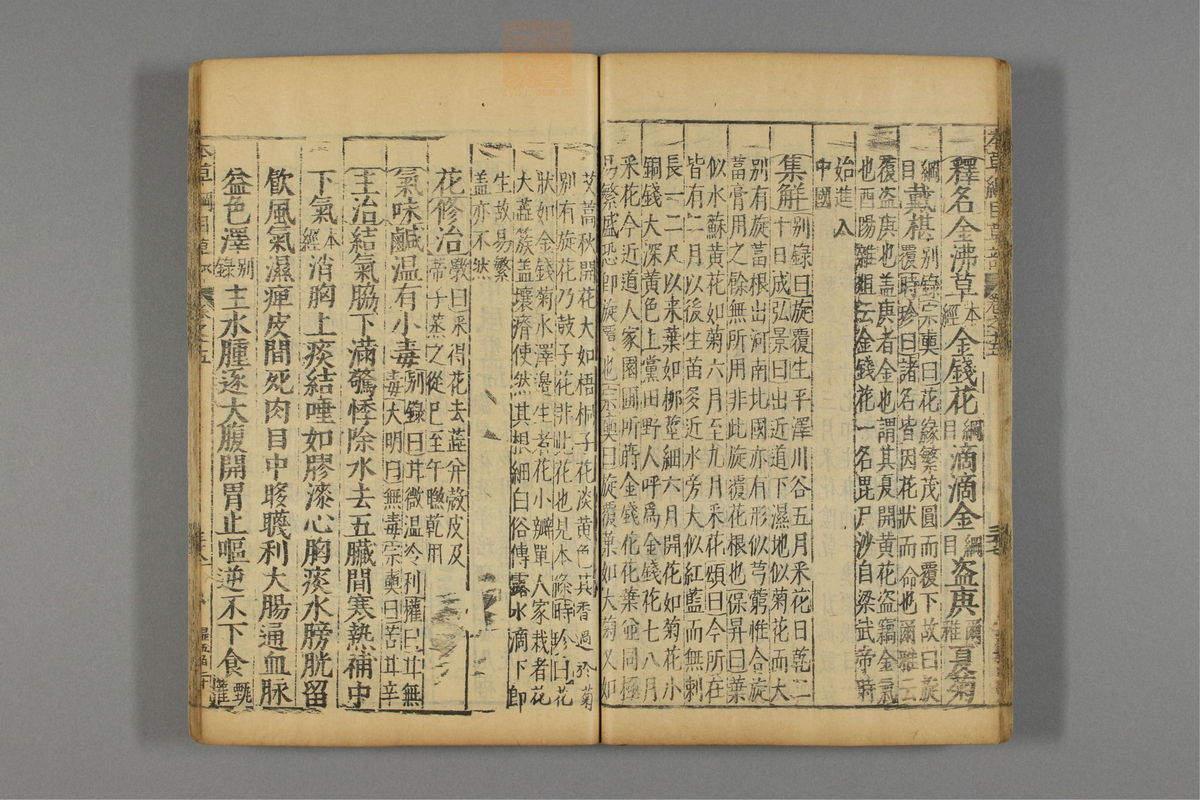 釋名金沸草本經金錢花綱目滴滴金綱目盜庚爾雅夏菊
綱目戴椹別錄宗奭曰花緣繁茂圓而覆下故曰旋
覆時珍曰諸名皆因花狀而命也爾雅云
覆盜庚也蓋庚者金也謂其夏開黃花盜竊金氣
也酉陽雜俎云金錢花一名毘尸沙自梁武帝時
始進入
中國
集解別錄曰旋覆生平澤川谷五月采花日乾二
十日成弘景曰出近道下濕地似菊花而大
別有旋葍根出河南北國亦有形似芎藭惟合旋
葍膏用之餘無所用非此旋覆花根也保昇曰葉
似水蘇黃花如菊六月至九月采花頌曰今所在
皆有二月以後生苗多近水旁大似紅藍而無刺
長一二尺以來葉如柳莖細六月開花如菊花小
銅錢大深黃色上黨田野人呼爲金錢花七八月
采花今近道人家園圃所蒔金錢花花葉並同極
易繁盛恐卽旋覆也宗奭曰旋覆葉如大菊又如
艾蒿秋開花大如梧桐子花淡黃色其香過於菊
別有旋花乃鼓子花非此花也見本條時珍曰花
狀如金錢菊水澤邊生者花小瓣單人家栽者花
大蕋簇蓋壤瘠使然其根細白俗傳露水滴下卽
生故易繁
蓋亦不然
花修治斅曰采得花去蕋并殼皮及
蒂子蒸之從巳至午曬乾用
氣味鹹溫有小毒別錄曰甘微溫冷利權曰甘無
毒大明曰無毒宗奭曰苦甘辛
主治結氣脇下滿驚悸除水去五臟間寒熱補中
下氣本經消胸上痰結唾如膠漆心胸痰水膀胱留
飲風氣濕痺皮間死肉目中眵䁾利大腸通血脉
益色澤別錄主水腫逐大腹開胃止嘔逆不下食甄權
本草綱目草部 卷之十五